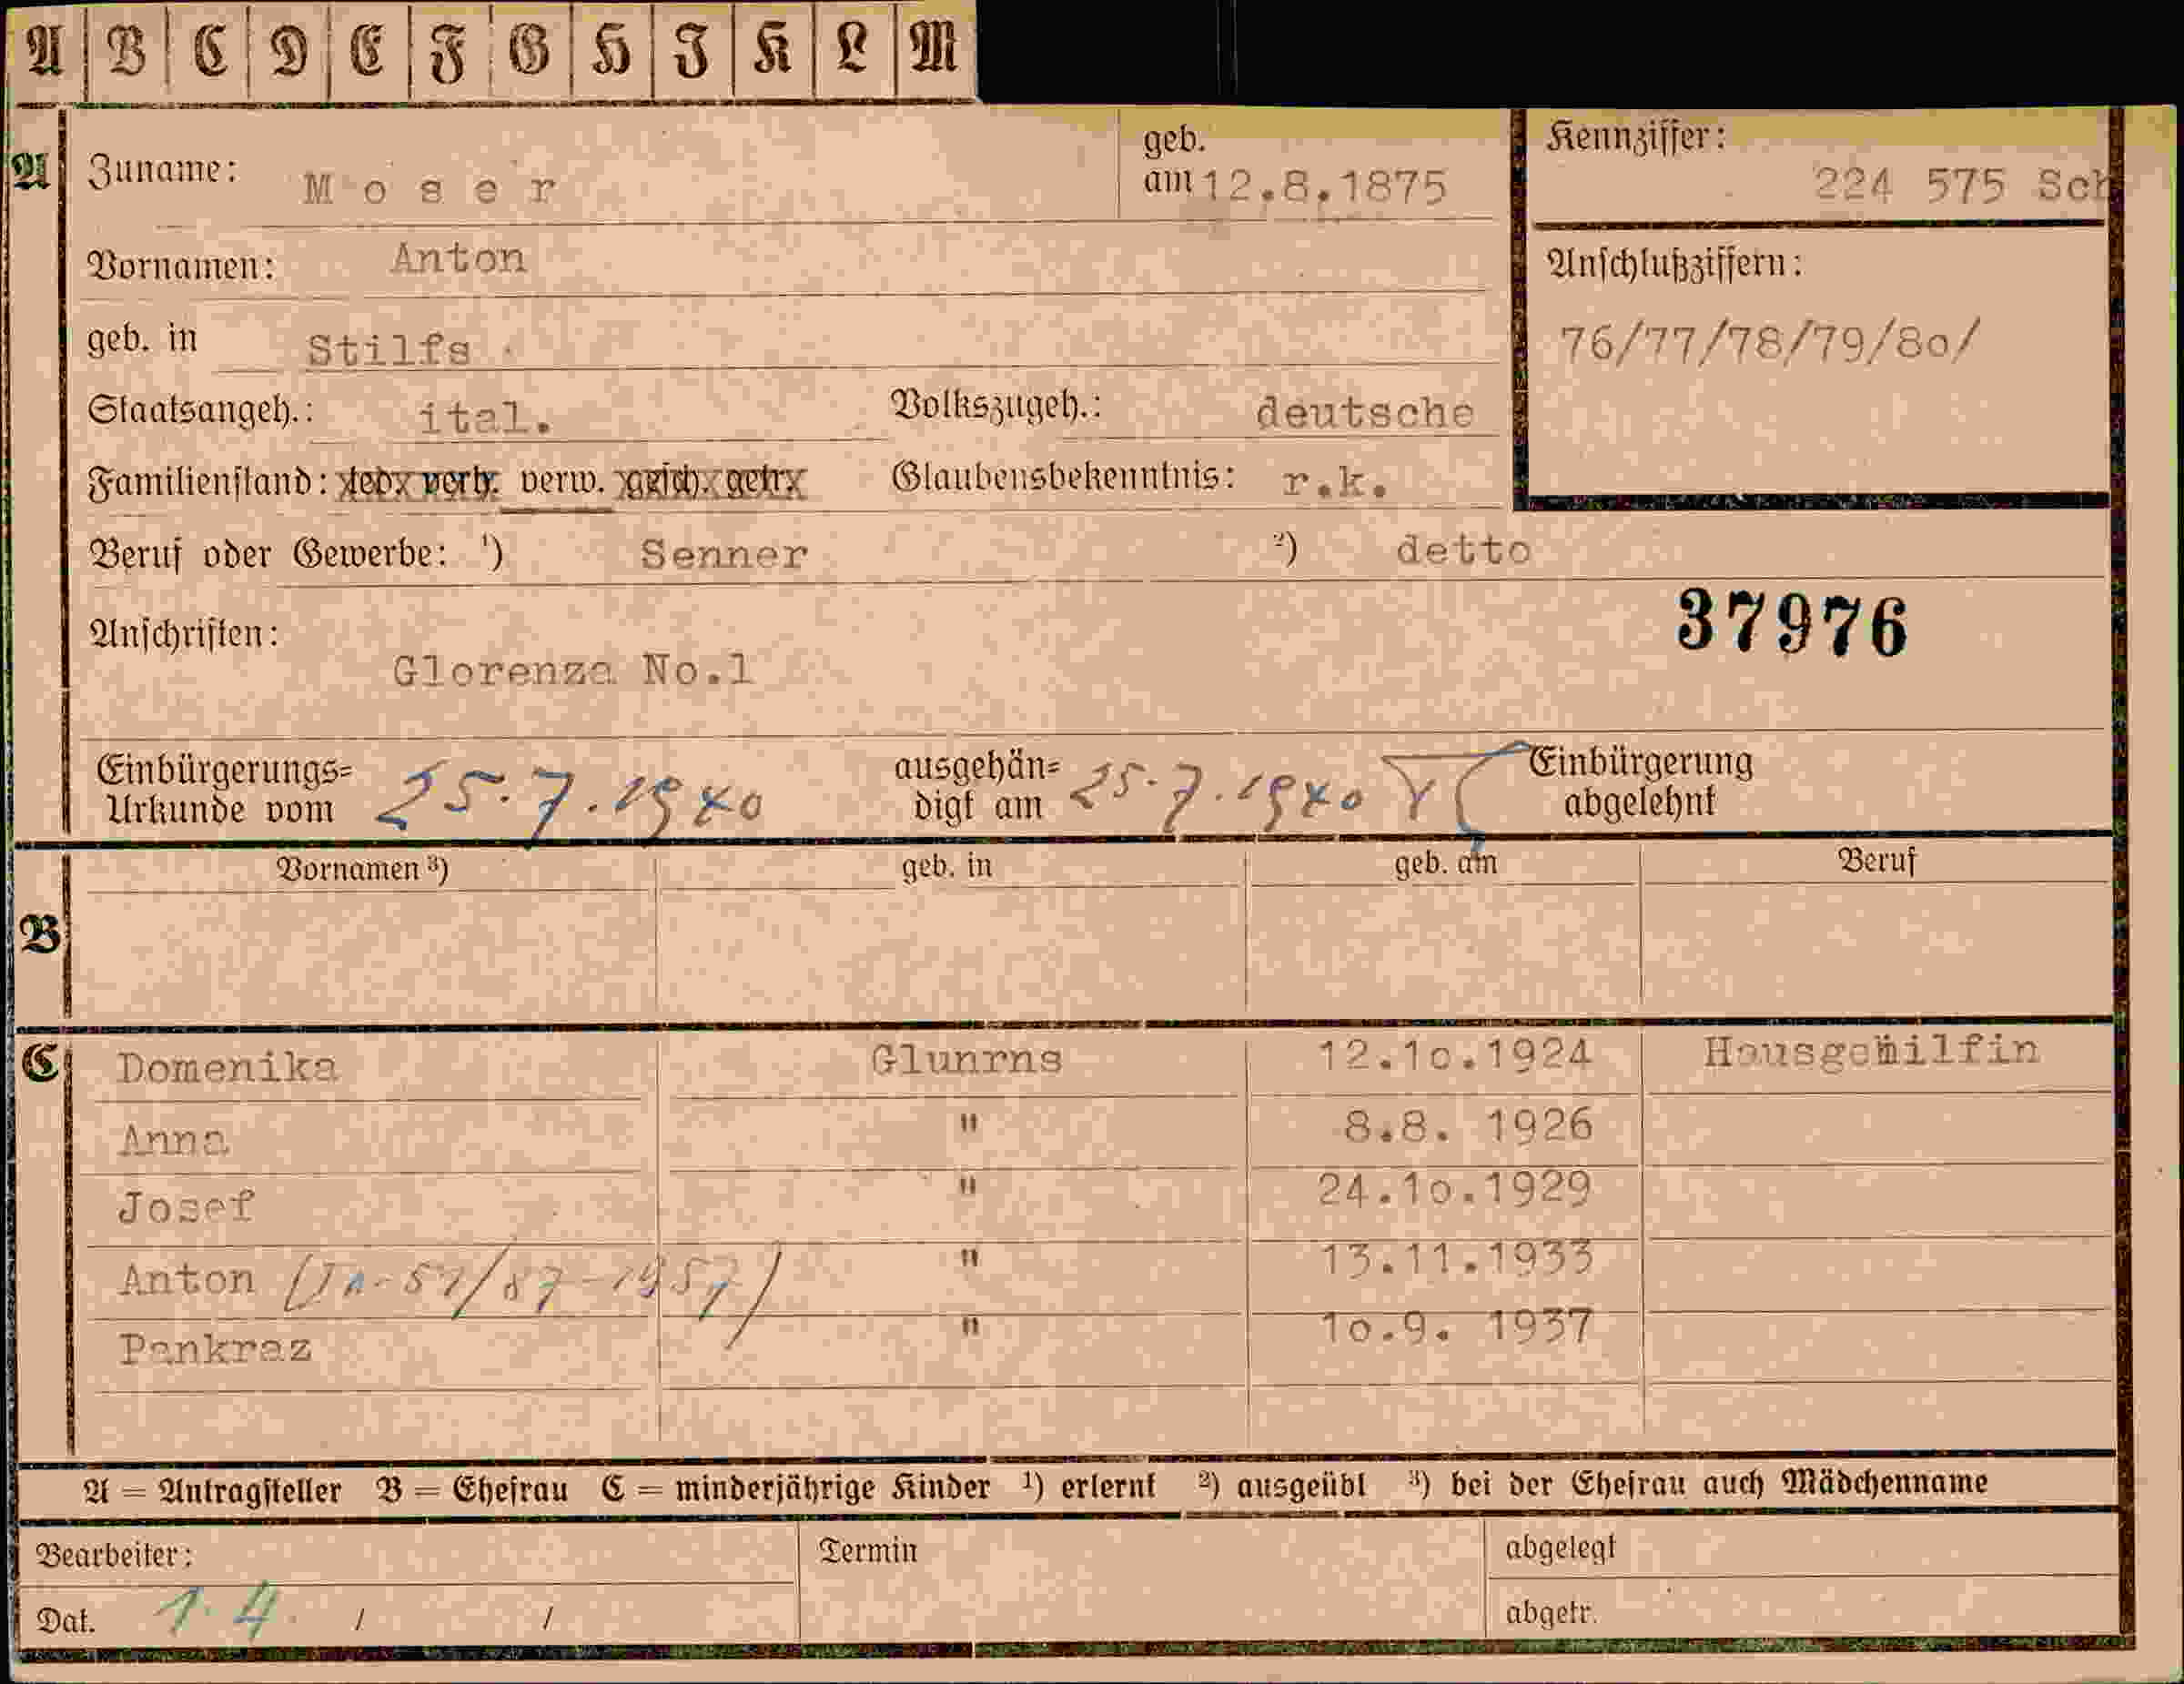 A B C D E F G H J K L M
A Zuname: Moser geb. am 12.8.1875 Kennziffer: 224 575 Sch
Vornamen: Anton Anschlußziffern:
geb. in Stilfs 76/77/78/79/80/
Staatsangeh.: ital. Volkszugeh.: deutsche
Familienstand: led. verh. verw. gesch. getr. Glaubensbekenntnis: r.k.
Beruf oder Gewerbe: ¹) Senner ²) detto
37976
Anschriften:
Glorenza No.1
Einbürgerungs= Urkunde vom 25.7.1940 ausgehän= digt am 25.7.1940 Einbürgerung abgelehnt
Vornamen ³) geb. in geb. am Beruf
B
C Domenika Glunrns 12.10.1924 Hausgehilfin
Anna " 8.8. 1926
Josef " 24.10.1929
Anton " 13.11.1933
Pankraz " 10.9. 1937
A = Antragsteller B = Ehefrau C = minderjährige Kinder ¹) erlernt ²) ausgeübt ³) bei der Ehefrau auch Mädchenname
Bearbeiter: Termin abgelegt
Dat. 1.4. / / abgetr.